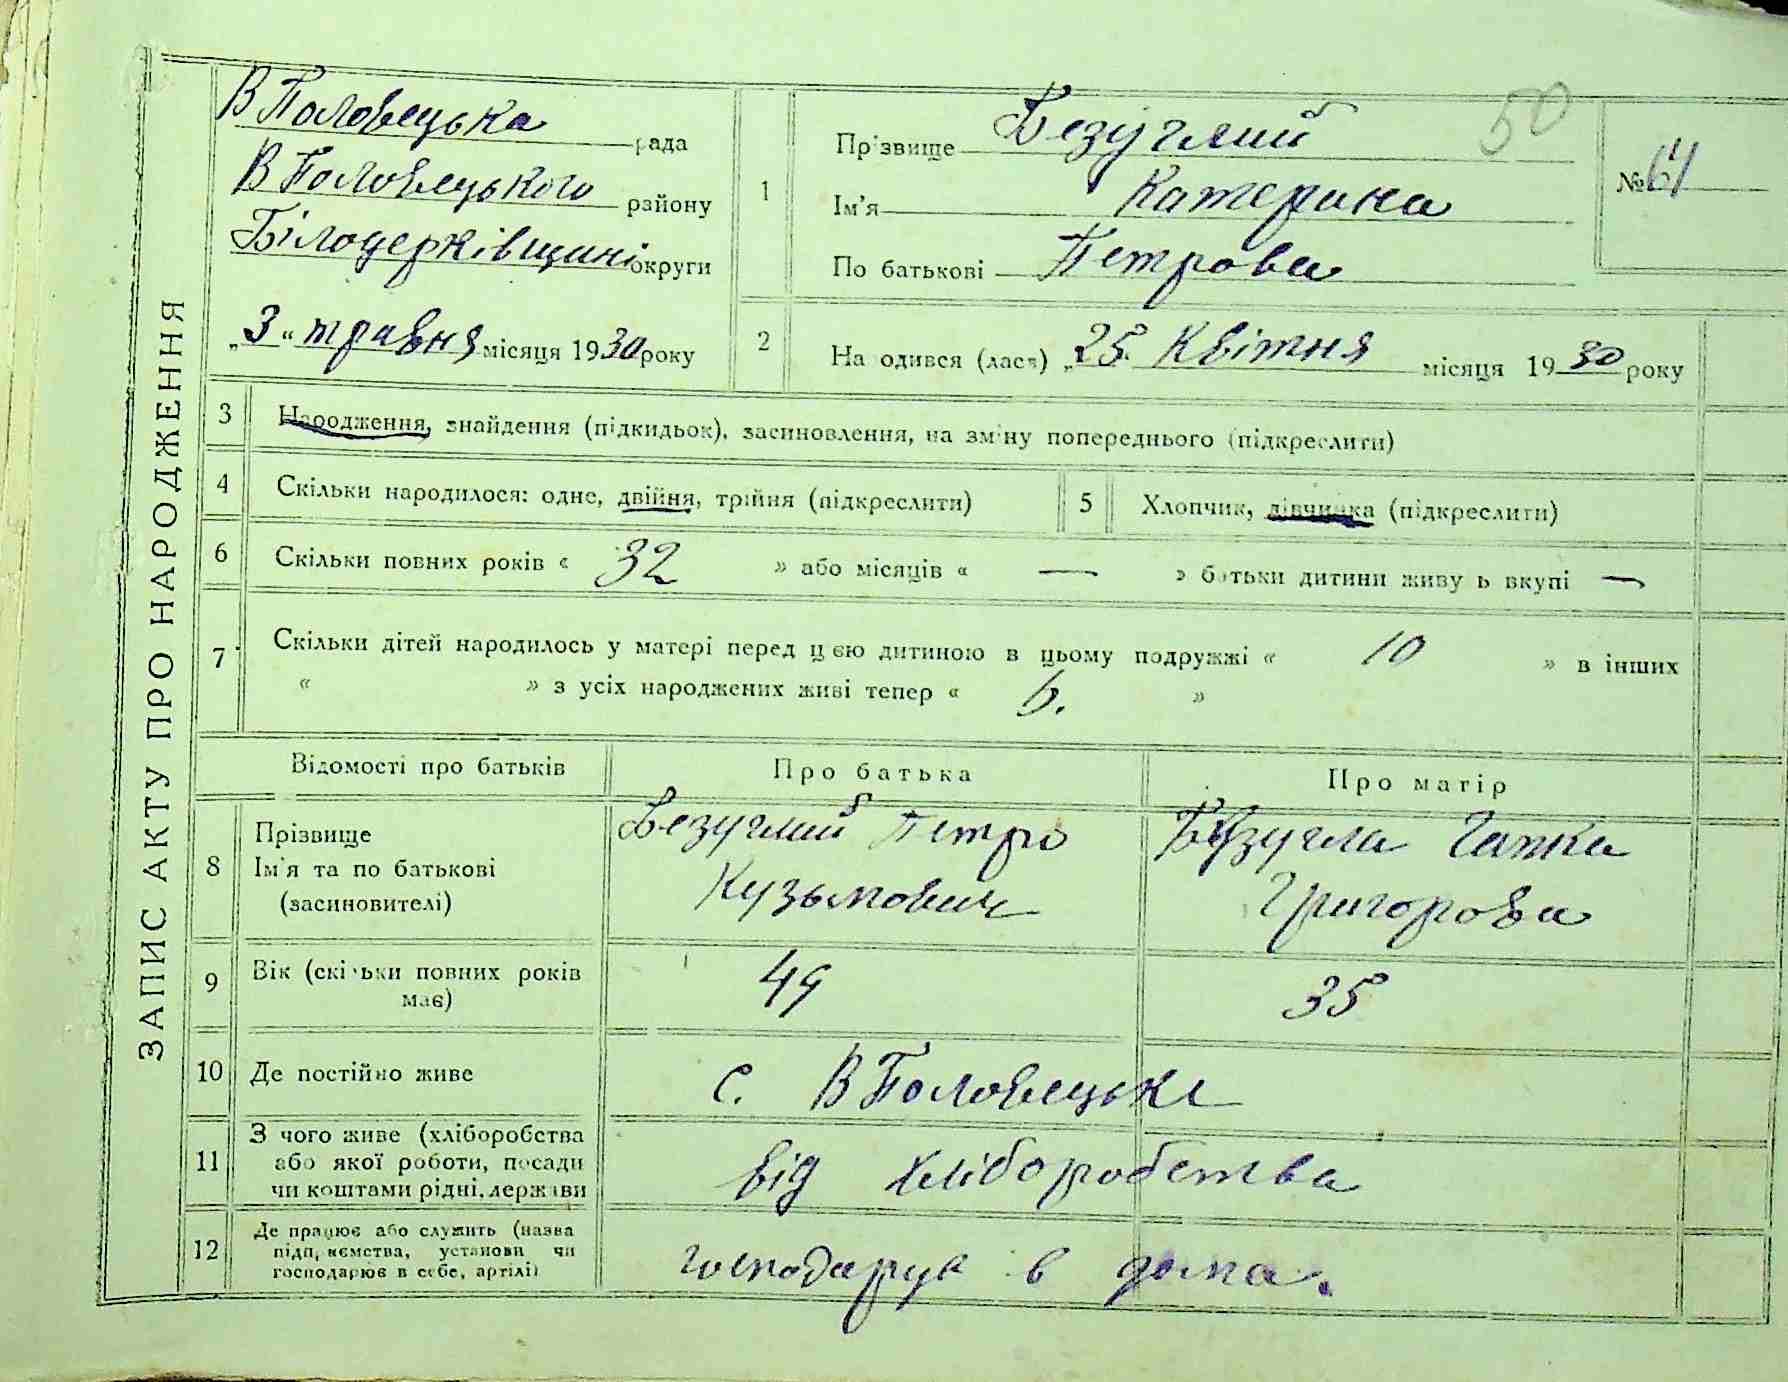 ЗАПИС АКТУ ПРО НАРОДЖЕННЯ
В Половецька рада
В Половецького району
Білоцерківщині округи
„3“ травня місяця 1930 року
50
№ 64
1
Прізвище Безуглий
Ім'я Катерина
По батькові Петрова
2
На одився (лася) „25. Квітня місяця 1930 року
3 Народження, знайдення (підкидьок), засиновлення, на зміну попереднього (підкреслити)
4 Скільки народилося: одне, двійня, трійня (підкреслити)
5 Хлопчик, дівчинка (підкреслити)
6 Скільки повних років « 32 » або місяців « — » батьки дитини живу ь вкупі —
7 Скільки дітей народилось у матері перед цією дитиною в цьому подружжі « 10 » в інших
« » з усіх народжених живі тепер « 6. »
Відомості про батьків Про батька Про матір
8 Прізвище
Ім'я та по батькові
(засиновителі)
Безуглий Петро
Кузьмович
Безугла Гапка
Григорова
9 Вік (скільки повних років
має)
49
35
10 Де постійно живе
с. В Половецьке
11 З чого живе (хліборобства
або якої роботи, посади
чи коштами рідні, держави
від хліборобства
12 Де працює або служить (назва
підп, иємства, установи чи
господарює в себе, артілі)
господарує в дома.